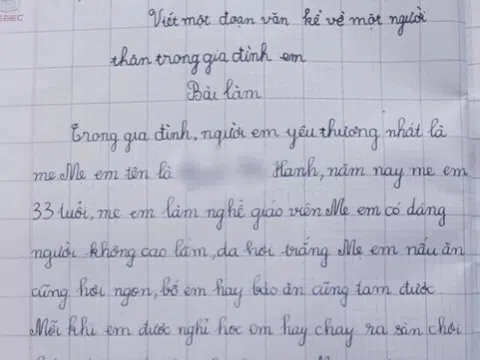 EBIEC
Viết một đoạn văn kể về một người
thân trong gia đình em
Bài làm
Trong gia đình, người em yêu thương nhất là
mẹ. Mẹ em tên là Hạnh, năm nay mẹ em
33 tuổi, mẹ em làm nghề giáo viên. Mẹ em có dáng
người không cao lắm, da hơi trắng. Mẹ em nấu ăn
cũng hơi ngon, bố em hay bảo ăn cũng tạm được.
Mỗi khi em được nghỉ học em hay chạy ra sân chơi